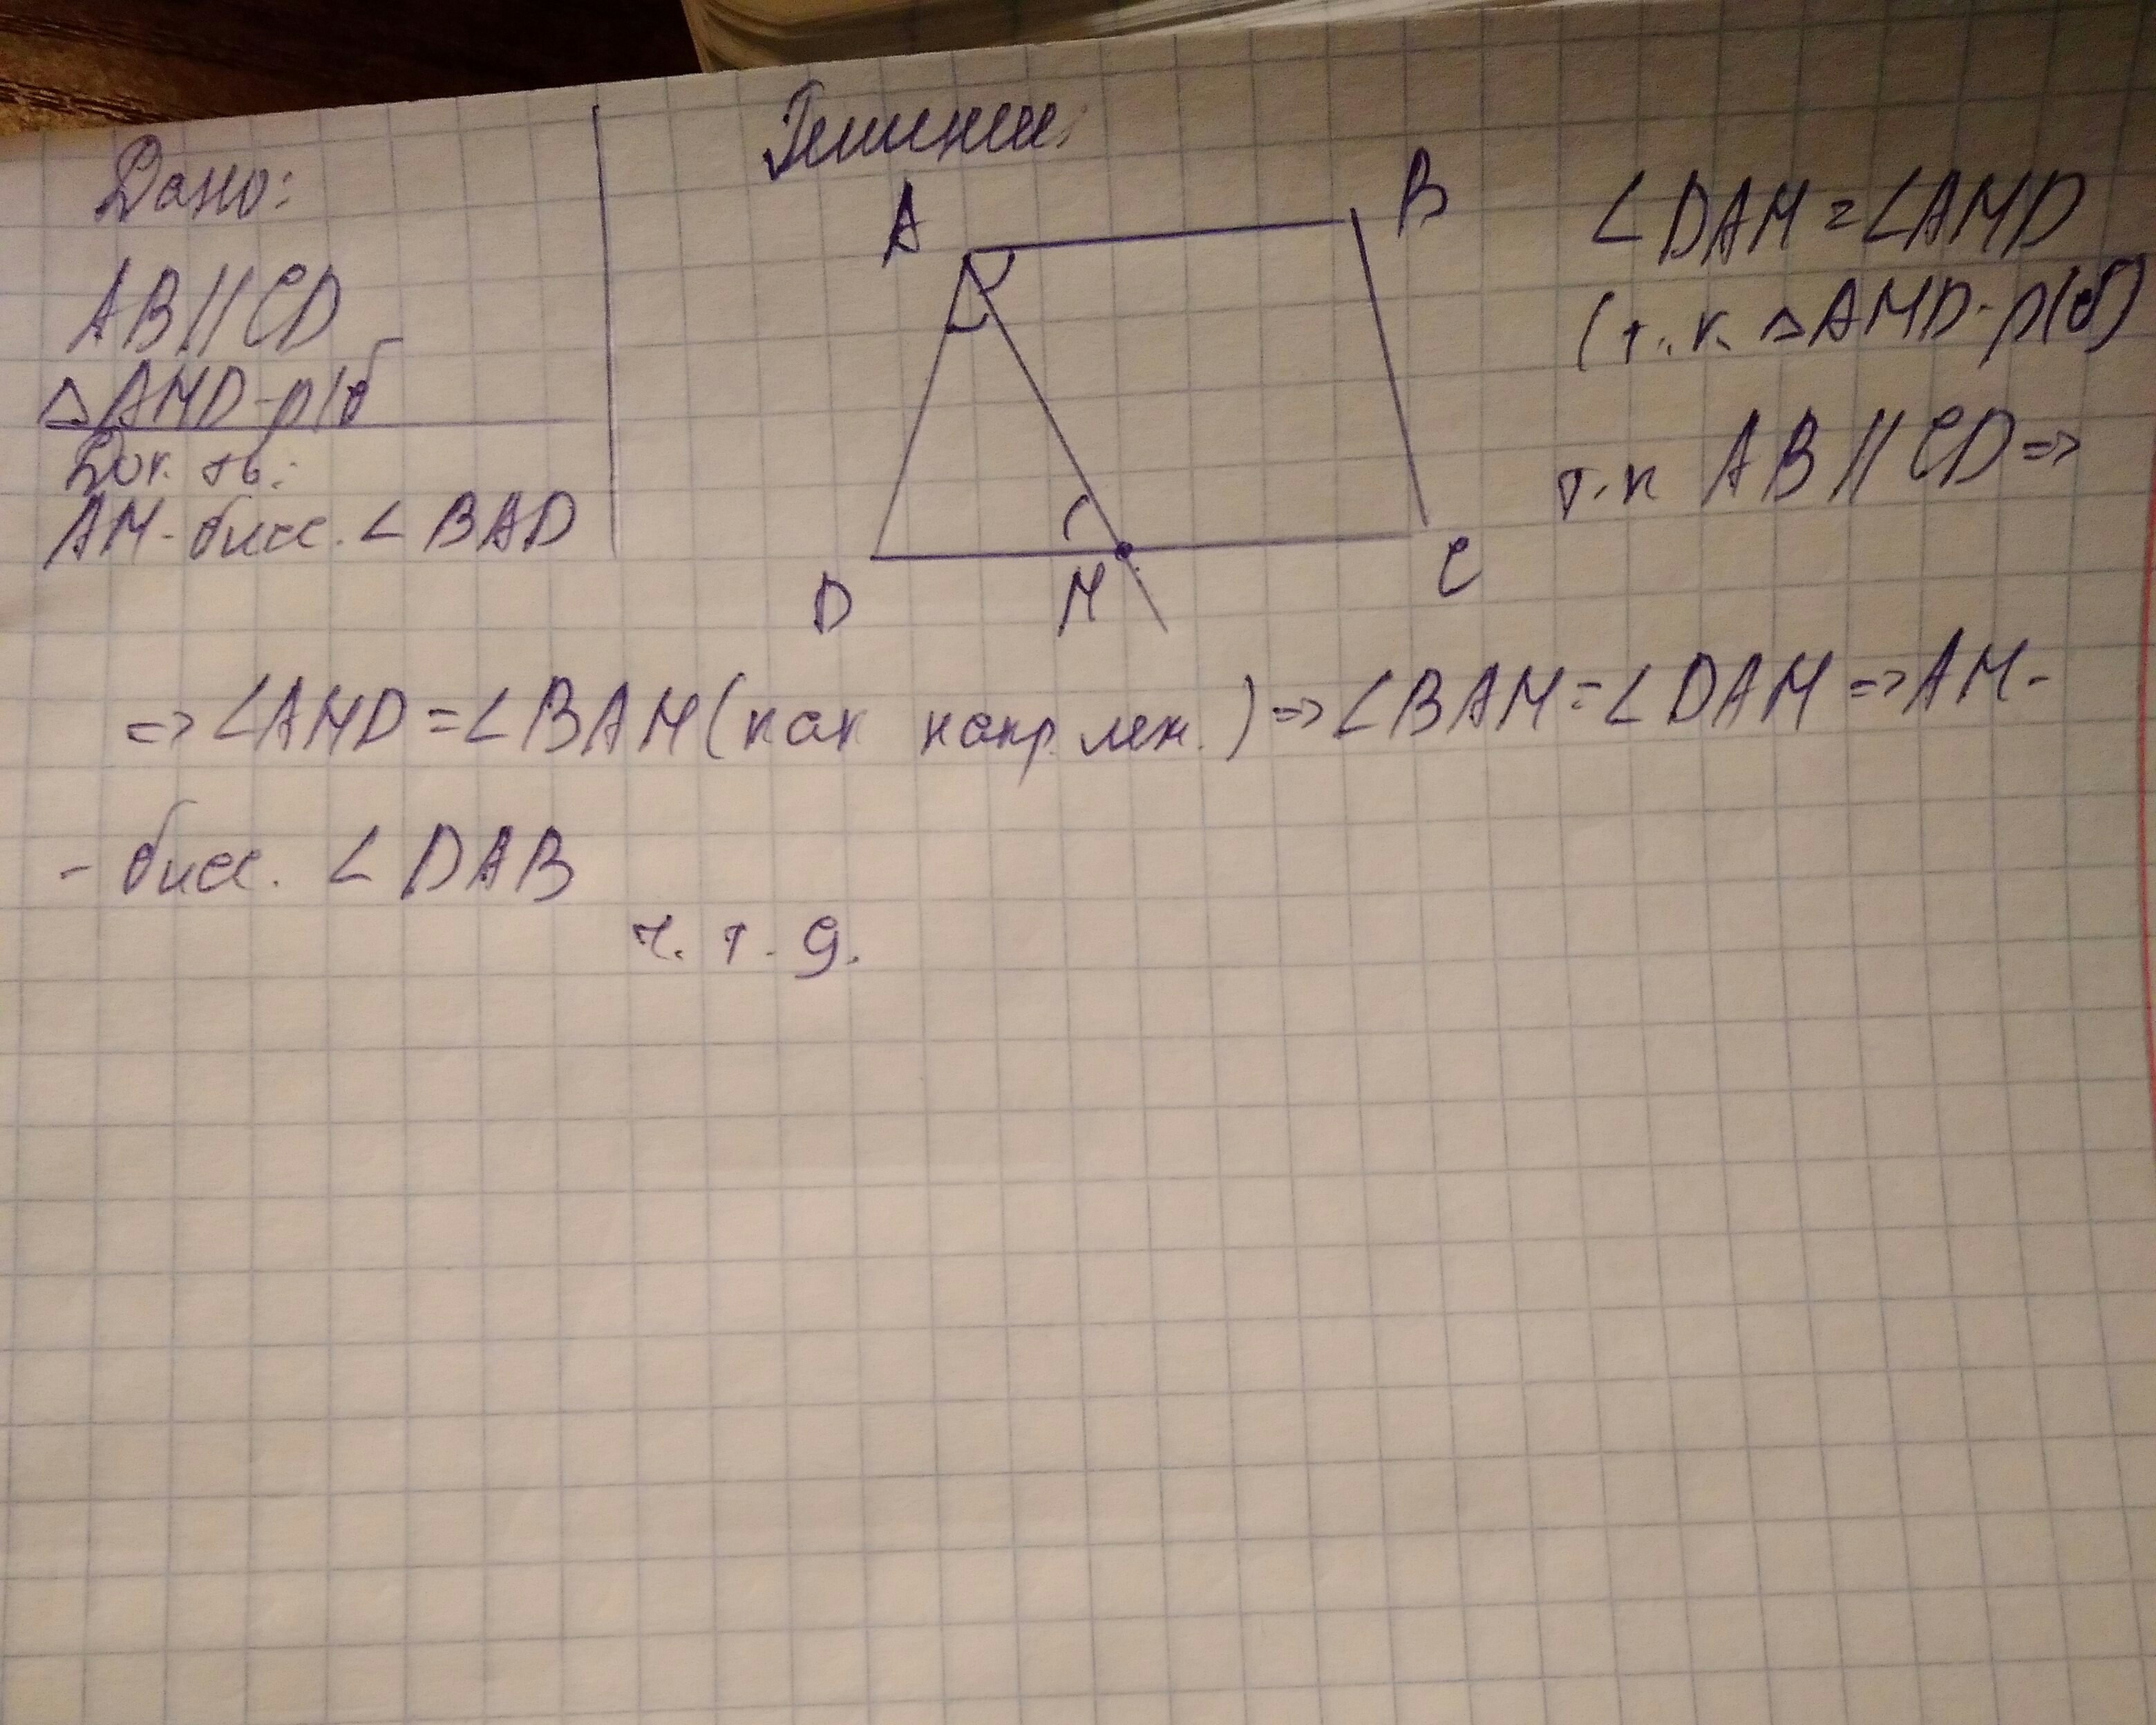 Дано:
AB || CD
△AMD - р/б
Док. ть:
AM - бисс. ∠BAD
Решение:
A
B
D
M
C
∠DAM = ∠AMD
(т.к △AMD - р/б)
т.к AB || CD =>
=> ∠AMD = ∠BAM (как накр леж.) => ∠BAM = ∠DAM => AM -
- бисс. ∠DAB
ч. т. д.